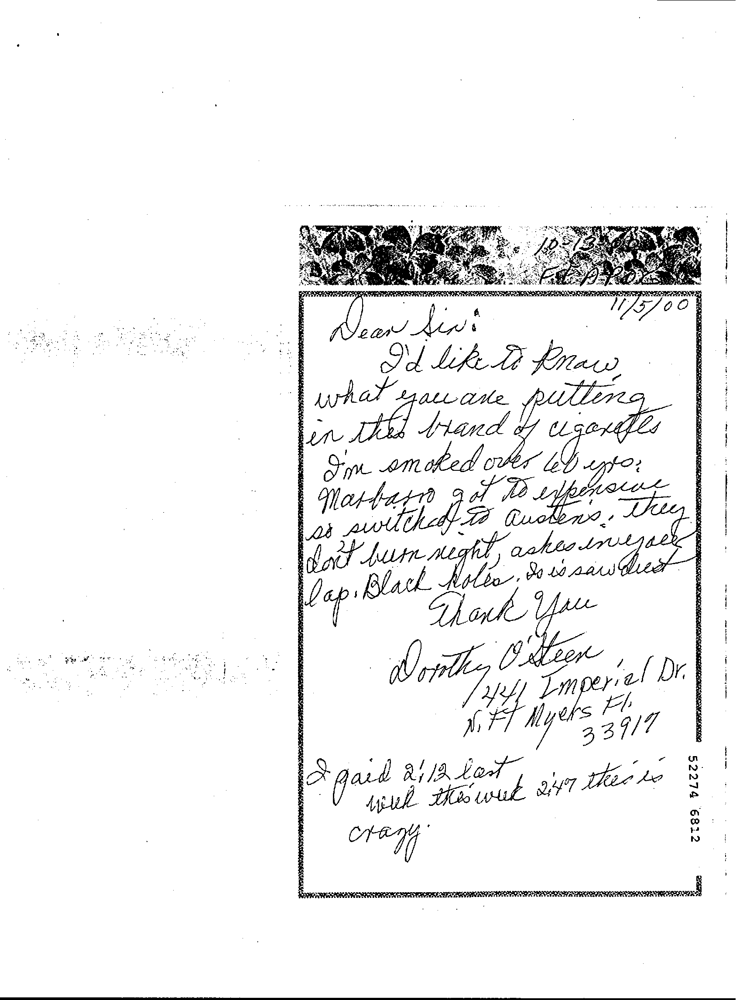 10-13
11/5/00
Dear Sir:
I'd like to know
what you are putting
in this brand of cigarettes
I'm smoked over 40 yrs.
Marbarro got to expensive
so switched to Austens. they
don't burn right, ashes in your
lap. Black holes. So is saw dust
Thank You
Dorothy O'Steen
1441 Imperial Dr.
N. Ft Myers Fl.
33917
I paid 2.12 last
week this week 2.47 this is
crazy.
52274 6812